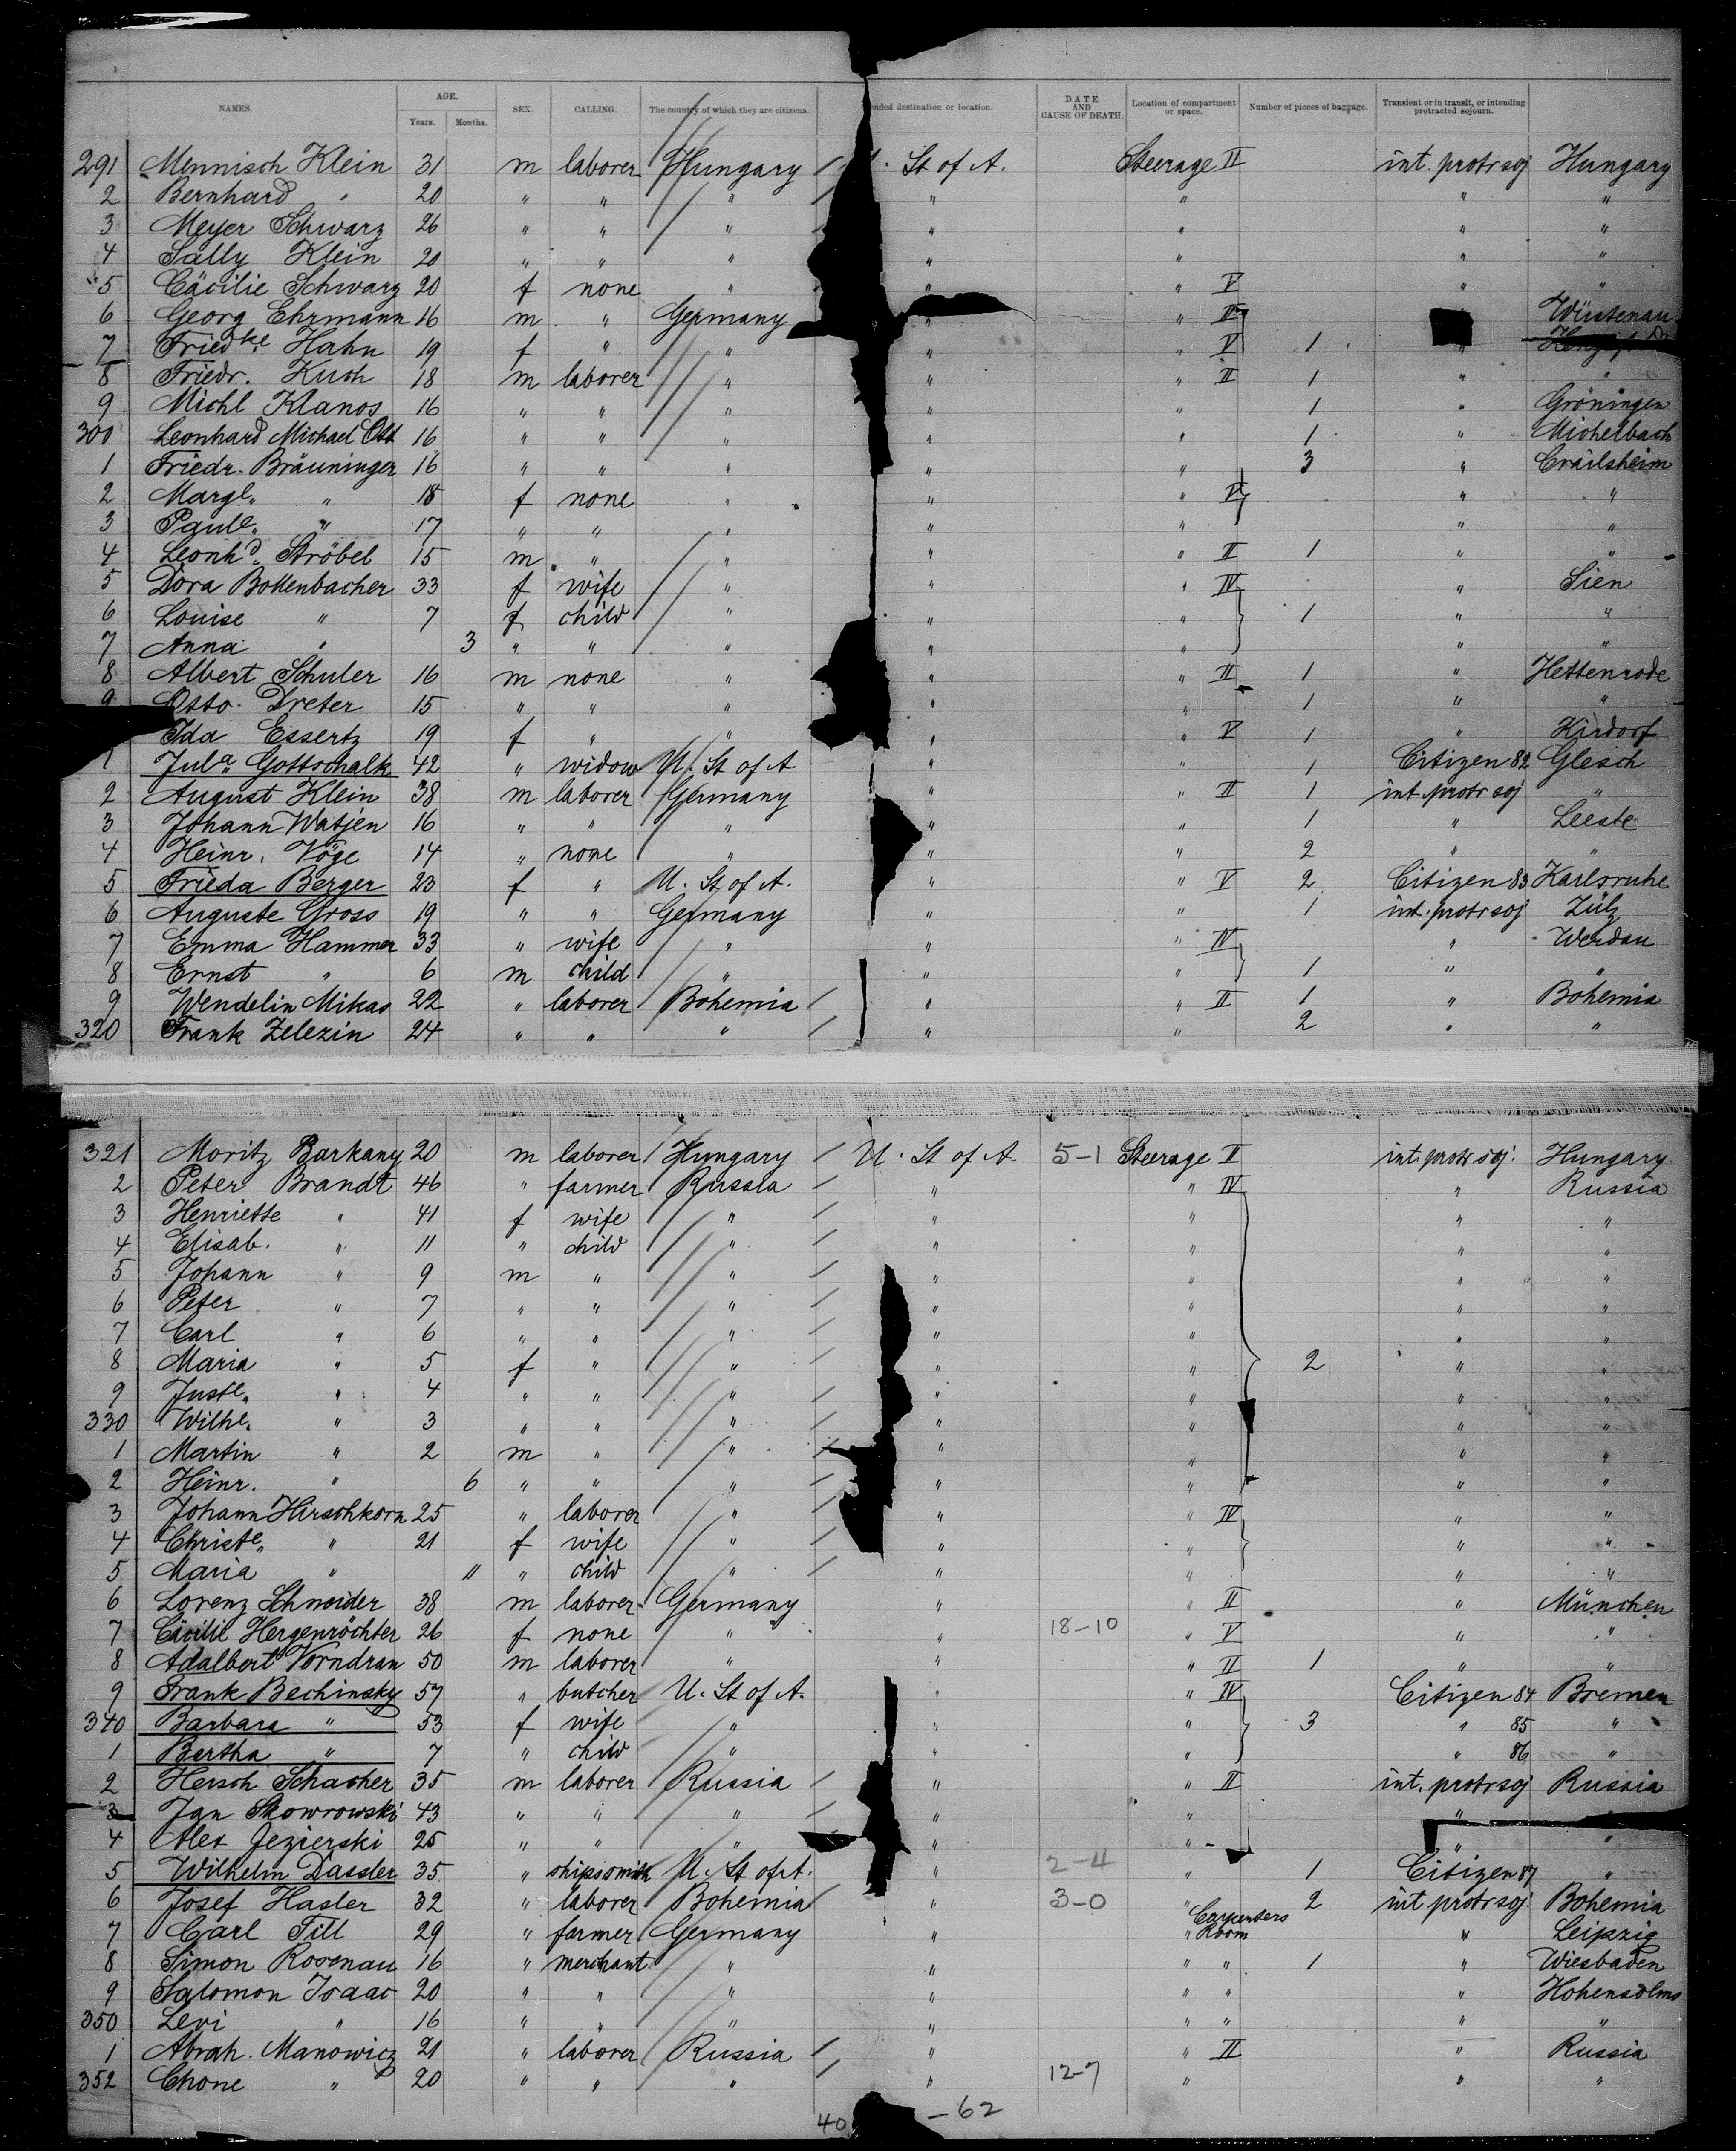 NAMES. AGE. Years. Months. SEX. CALLING. The country of which they are citizens. ended destination or location. DATE AND CAUSE OF DEATH. Location of compartment or space. Number of pieces of baggage. Transient or in transit, or intending protracted sojourn.
291 Mennisch Klein 31 m laborer Hungary . St of A. Steerage II int. protr soj Hungary
2 Bernhard " 20 " " " " " " "
3 Meyer Schwarz 26 " " " " " " "
4 Sally Klein 20 " " " " " " "
5 Cäcilie Schwarz 20 f none " " " V " "
6 Georg Ehrmann 16 m " Germany " " II Wüstenau
7 Friedke Hahn 19 f " " " " V 1 "
8 Friedr. Kuch 18 m laborer " " " II 1 " "
9 Michl Klanos 16 " " " " " 1 " Gröningen
300 Leonhard Michael Ott 16 " " " " " 1 " Michelbach
1 Friedr. Bräuninger 16 " " " " " 3 " Crailsheim
2 Margt. " 18 f none " " " V " "
3 Paule. " 17 " " " " " " "
4 Leonhd. Ströbel 15 m " " " " II 1 " "
5 Dora Bottenbacher 33 f wife " " " IV " Sien
6 Louise " 7 f child " " " 1 " "
7 Anna " 3 " " " " " " "
8 Albert Schuler 16 m none " " " II 1 " Hettenrode
9 Otto Dreter 15 " " " " " 1 " "
Ida Essertz 19 f " " " " V 1 " Kirdorf
1 Jula. Gottschalk 42 " widow U. St of A. " " 1 Citizen 82 Glesch
2 August Klein 38 m laborer Germany " " II 1 int. protr soj "
3 Johann Watjen 16 " " " " " 1 " Leeste
4 Heinr. Vöge 14 " none " " " 2 " "
5 Frieda Berger 23 f " U. St of A. " " V 2 Citizen 83 Karlsruhe
6 Auguste Gross 19 " " Germany " " 1 int. protr soj Zülz
7 Emma Hammer 33 " wife " " " IV " Werdau
8 Ernst " 6 m child " " " 1 " "
9 Wendelin Mikas 22 " laborer Bohemia " " II 1 " Bohemia
320 Frank Zelezin 24 " " " " " 2 " "
321 Moritz Barkany 20 m laborer Hungary U. St of A. 5-1 Steerage II int. protr soj. Hungary
2 Peter Brandt 46 " farmer Russia " " IV " Russia
3 Henriette " 41 f wife " " " " "
4 Elisab. " 11 " child " " " " "
5 Johann " 9 m " " " " " "
6 Peter " 7 " " " " " " "
7 Carl " 6 " " " " " " "
8 Maria " 5 f " " " " 2 " "
9 Juste. " 4 " " " " " " "
330 Wilhe. " 3 " " " " " " "
1 Martin " 2 m " " " " " "
2 Heinr. " 6 " " " " " " "
3 Johann Hirschkorn 25 " laborer " " " IV " "
4 Christe. " 21 f wife " " " " "
5 Maria " 11 " child " " " " "
6 Lorenz Schneider 38 m laborer Germany " " II " München
7 Cäcilie Hergenröchter 26 f none " " 18-10 " V " "
8 Adalbert Vorndran 50 m laborer " " " II 1 " "
9 Frank Bechinsky 57 " butcher U. St of A. " " IV Citizen 84 Bremen
340 Barbara " 53 f wife " " " 3 " 85 "
1 Bertha " 7 " child " " " " 86 "
2 Hersch Schacher 35 m laborer Russia " " II int. protr soj Russia
3 Jan Skowrowski 43 " " " " " "
4 Alex Jezierski 25 " " " " " " "
5 Wilhelm Dassler 35 " shipssmith U. St of A. " 2-4 " 1 Citizen 87 "
6 Josef Hasler 32 " laborer Bohemia " 3-0 " 2 int protr soj. Bohemia
7 Carl Till 29 " farmer Germany " " Carpenters Room " Leipzig
8 Simon Rosenau 16 " merchant " " " " 1 " Wiesbaden
9 Salomon Isaac 20 " " " " " " " Hohensolms
350 Levi " 16 " " " " " " " "
1 Abrah. Manowicz 21 " laborer Russia " " II " Russia
352 Chone " 20 " " " " 12-7 " " "
40 - 62